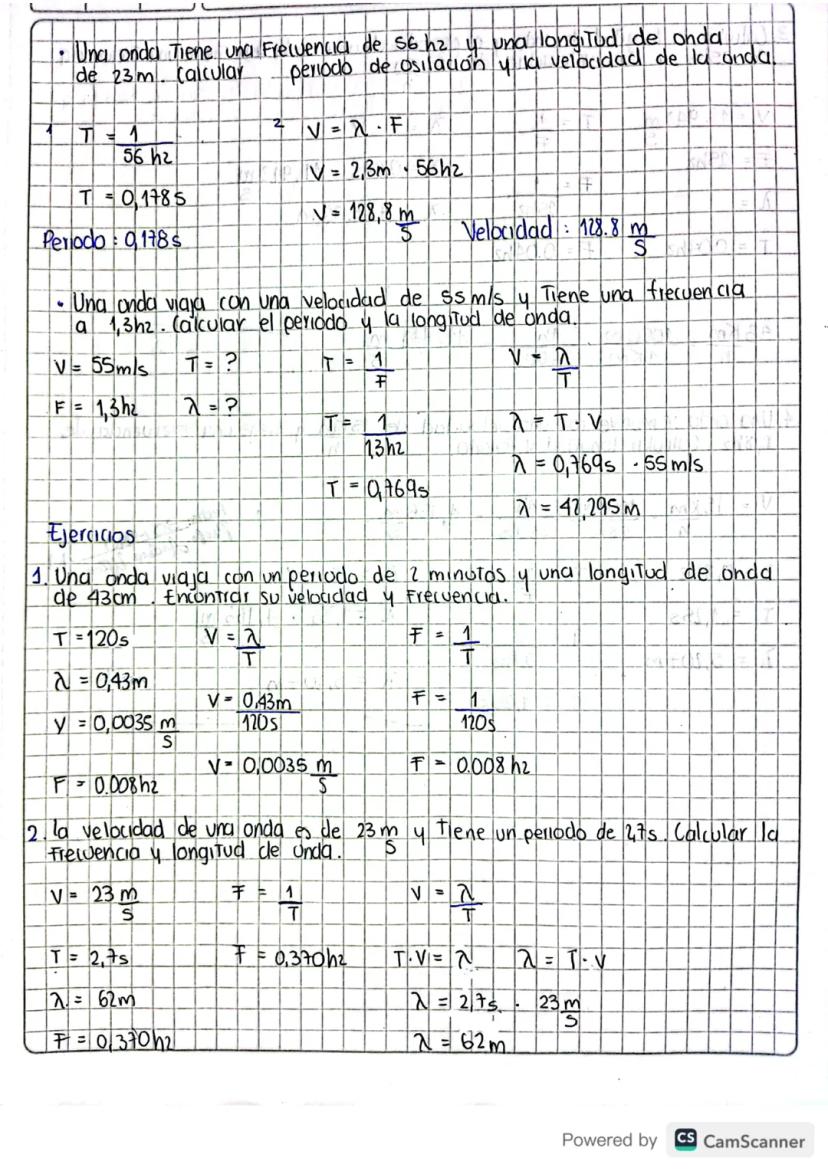 • Una onda Tiene una Frecuencia de 56 hz y una longitud de onda
de 23m. Calcular periodo de osilación y la velocidad de la onda.
1 T = 1/56 hz
2 V = λ · F
V = 2,3m · 56hz
T = 0,178s
V = 128,8 m/s
Periodo : 0,178s
Velocidad : 128.8 m/s
• Una onda viaja con una velocidad de 55 m/s y Tiene una frecuencia
a 1,3hz. Calcular el periodo y la longitud de onda.
V = 55m/s T = ? T = 1/F V = λ/T
F = 1,3hz λ = ?
T = 1/1,3hz λ = T · V
λ = 0,769s · 55m/s
T = 0,769s
λ = 42,295m
Ejercicios
1. Una onda viaja con un periodo de 2 minutos y una longitud de onda
de 43cm. Encontrar su velocidad y Frecuencia.
T = 120s V = λ/T F = 1/T
λ = 0,43m
V = 0,43m/120s F = 1/120s
V = 0,0035 m/s
V = 0,0035 m/s F = 0.008 hz
F = 0.008hz
2. la velocidad de una onda es de 23 m/s y Tiene un periodo de 2,7s. Calcular la
frecuencia y longitud de onda.
V = 23 m/s F = 1/T V = λ/T
T = 2,7s F = 0,370hz T·V = λ λ = T·V
λ = 62m λ = 2,7s · 23 m/s
F = 0,370hz λ = 62m
Powered by CS CamScanner